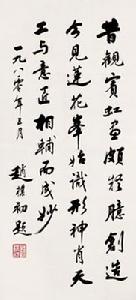 昔观宾虹画颇疑臆创造
今见莲花峰始识形神肖天
工与意匠相辅而成妙
一九八〇年三月
赵朴初题